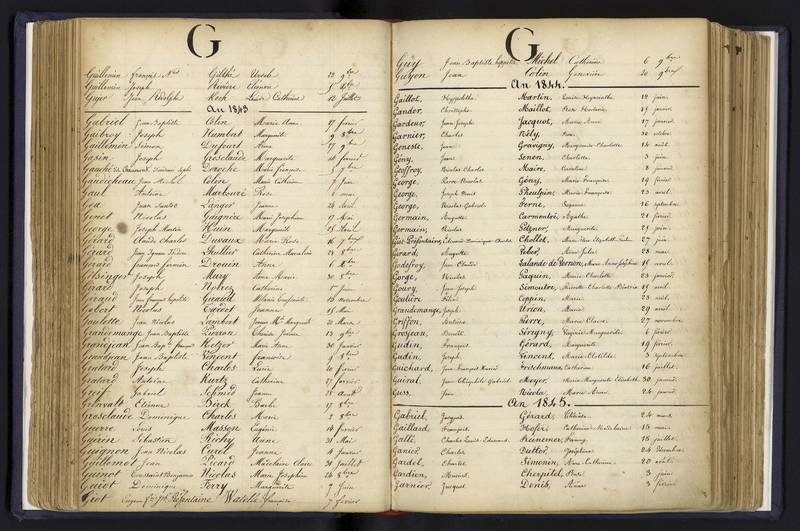 G
Guillemin François N.as Gilthé Ursule 23 9bre
Guillemin Joseph Rivière Eléonore 5 Xbre
Guyer Jean Rodolph Koch Louise Catherine 12 Juillet
An 1843
Gabriel Jean Baptiste Colin Marie Anne 17 février
Gaibroy Joseph Humbert Marguerite 9 8bre
Guillemin Simeon Dufourt Anne 27 9bre
Gasin Joseph Grosclaude Marguerite février
Gauché Laroche Marie françoise 5 9bre
Gaudicheau Jean Michel Colin Marie Catherine 7 Juin
Gaul Antoine Martouré Rose 6 mai
God Jean Santos Langer Jeanne 24 Avril
Genot Nicolas Guignère Marie Josephine 27 Mai
George Joseph Martin Huin Marguerite 25 Avril
Gérard Claude Charles Duvaux Marie Rose 16 7bre
Gérard Jean Ignace Isidore Thullier Catherine Marceline 28 8bre
Gérard françois Germain Drouin Anne 6 Xbre
Gissinger Joseph Mury Anne Marie 30 8bre
Girard Joseph Noirez Catherine Juin
Giraud Jean françois hyppolite Giraud Mélanie Eusébie 15 novembre
Gobert Nicolas Cardot Jeanne 15 Mai
Goulette Jean Nicolas Lambert Jeanne Mte Margueritte 21 Mars
Grandemange Jean Baptiste Lorson Thérèse Jeanne 13 9bre
Grandjean Jean Bapte françois Kelzer Marie Anne 30 Janvier
Grandjean Jean Baptiste Vincent françoise 9 8bre
Gratard Joseph Charles Lucie 20 février
Gratard Antoine Kurtz Catherine 27 février
Greff Gabriel Schmid Jeanne 28 Août
Gronvalt Etienne Birck Barbe 17 8bre
Grosclaude Dominique Charles Marie 2 9bre
Guerre Louis Masson Eugénie 14 février
Guérin Sébastien Richy Anne 31 Mai
Guignon Jean Nicolas Curel Jeanne 4 Janvier
Guillemot Jean Licard Madelaine Claire 31 Juillet
Guinot Nicolas Marie Josephine 24 8bre
Guiot Dominique Ferry Marguerite 9 Juin
Giot Eugène Watelé françoise 7 février
G
Guy Jean Baptiste hyppolite Michel Catherine 6 9bre
Guyon Jean Colin Geneviève 20 9bre
An 1844.
Gaillot, Hyppolithe Martin, Louise Hyacinthe 12 juin
Gander, Christophe Maillot, Rose Honorine 15 janvier
Gardeur, Jean Joseph Jacquot, Marie Anne 17 janvier
Garnier, Charles Rély, Rose 30 octobre
Geneste, Jean Gravigny, Marguerite Charlotte 14 août
Gény, Jean Senon, Charlotte 3 juin
Geoffroy, Nicolas Charles Maire, Caroline 8 janvier
George, Pierre Nicolas Gény, Marie Françoise 19 février
George, Joseph Dieudé Pheulpin, Marie Françoise 23 avril
George, Nicolas Gabriel Ferne, Suzanne 16 septembre
Germain, Auguste Carmentré, Agathe 21 février
Germain, Nicolas Seltzner, Marguerite 29 juin
Chollot, 27 juin
Girard, Auguste Peber, 28 mai
Godefroy, Jean Claude Lalande de Vernon, Marie Anne Joséphine 15 avril
Gorge, Nicolas Paquin, Marie Charlotte 23 janvier
Goury, Jean Joseph Simoutre, Pierrette Charlotte Béatrix 15 avril
Goulière Félix Coppin, Marie 23 avril
Grandemange, Joseph Urion, Marie 29 avril
Griffon, Antoine Pierre, Marie Claire 27 novembre
Grosjean, Nicolas Sérigny, Virginie Marguerite 6 février
Gudin, François Gérard, Marguerite 19 février
Gudin, Joseph Vincent, Marie Clotilde 3 septembre
Guichard, Jean François Honoré Fritschmann, Catherine 16 juillet
Guiral, Jean Cléophile Gabriel Meyer, Marie Marguerite Elisabeth 30 janvier
Guss, Jean Nicola, Marie Anne 24 janvier
An 1845.
Gabriel, Jacques Gérard, Claude 24 mars
Gaillard, François Hofer, Catherine Madelaine 15 mai
Galli, Charles Louis Edouard Preunener, Fanny 15 juillet
Ganier, Charles Dutter, Joséphine 24 décembre
Gardel, Charles Simonin, Anne Catherine 20 août
Gardien, Maurice Vierpied, Rose 3 juin
Garnier, Jacques Denis, Anne 3 février